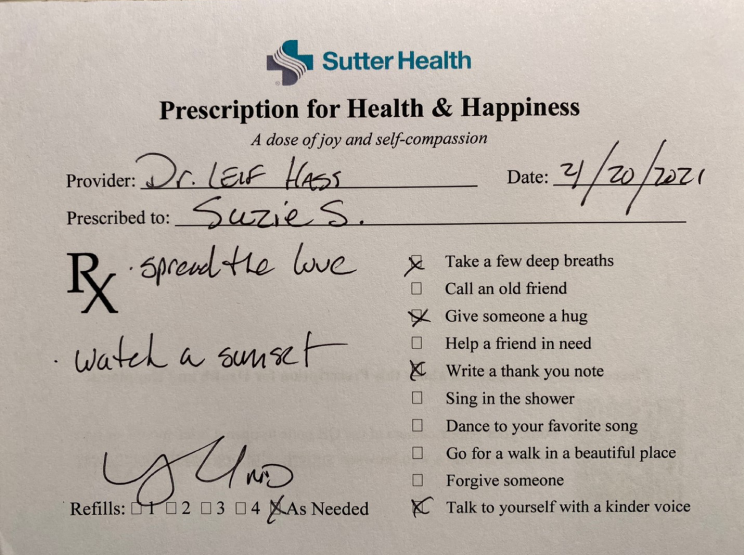 Sutter Health
Prescription for Health & Happiness
A dose of joy and self-compassion
Provider: Dr. LEIF HASS
Date: 4/20/2021
Prescribed to: Suzie S.
Rx
· spread the love
· watch a sunset
Take a few deep breaths
Call an old friend
Give someone a hug
Help a friend in need
Write a thank you note
Sing in the shower
Dance to your favorite song
Go for a walk in a beautiful place
Forgive someone
Talk to yourself with a kinder voice
MD
Refills: 1 2 3 4 As Needed